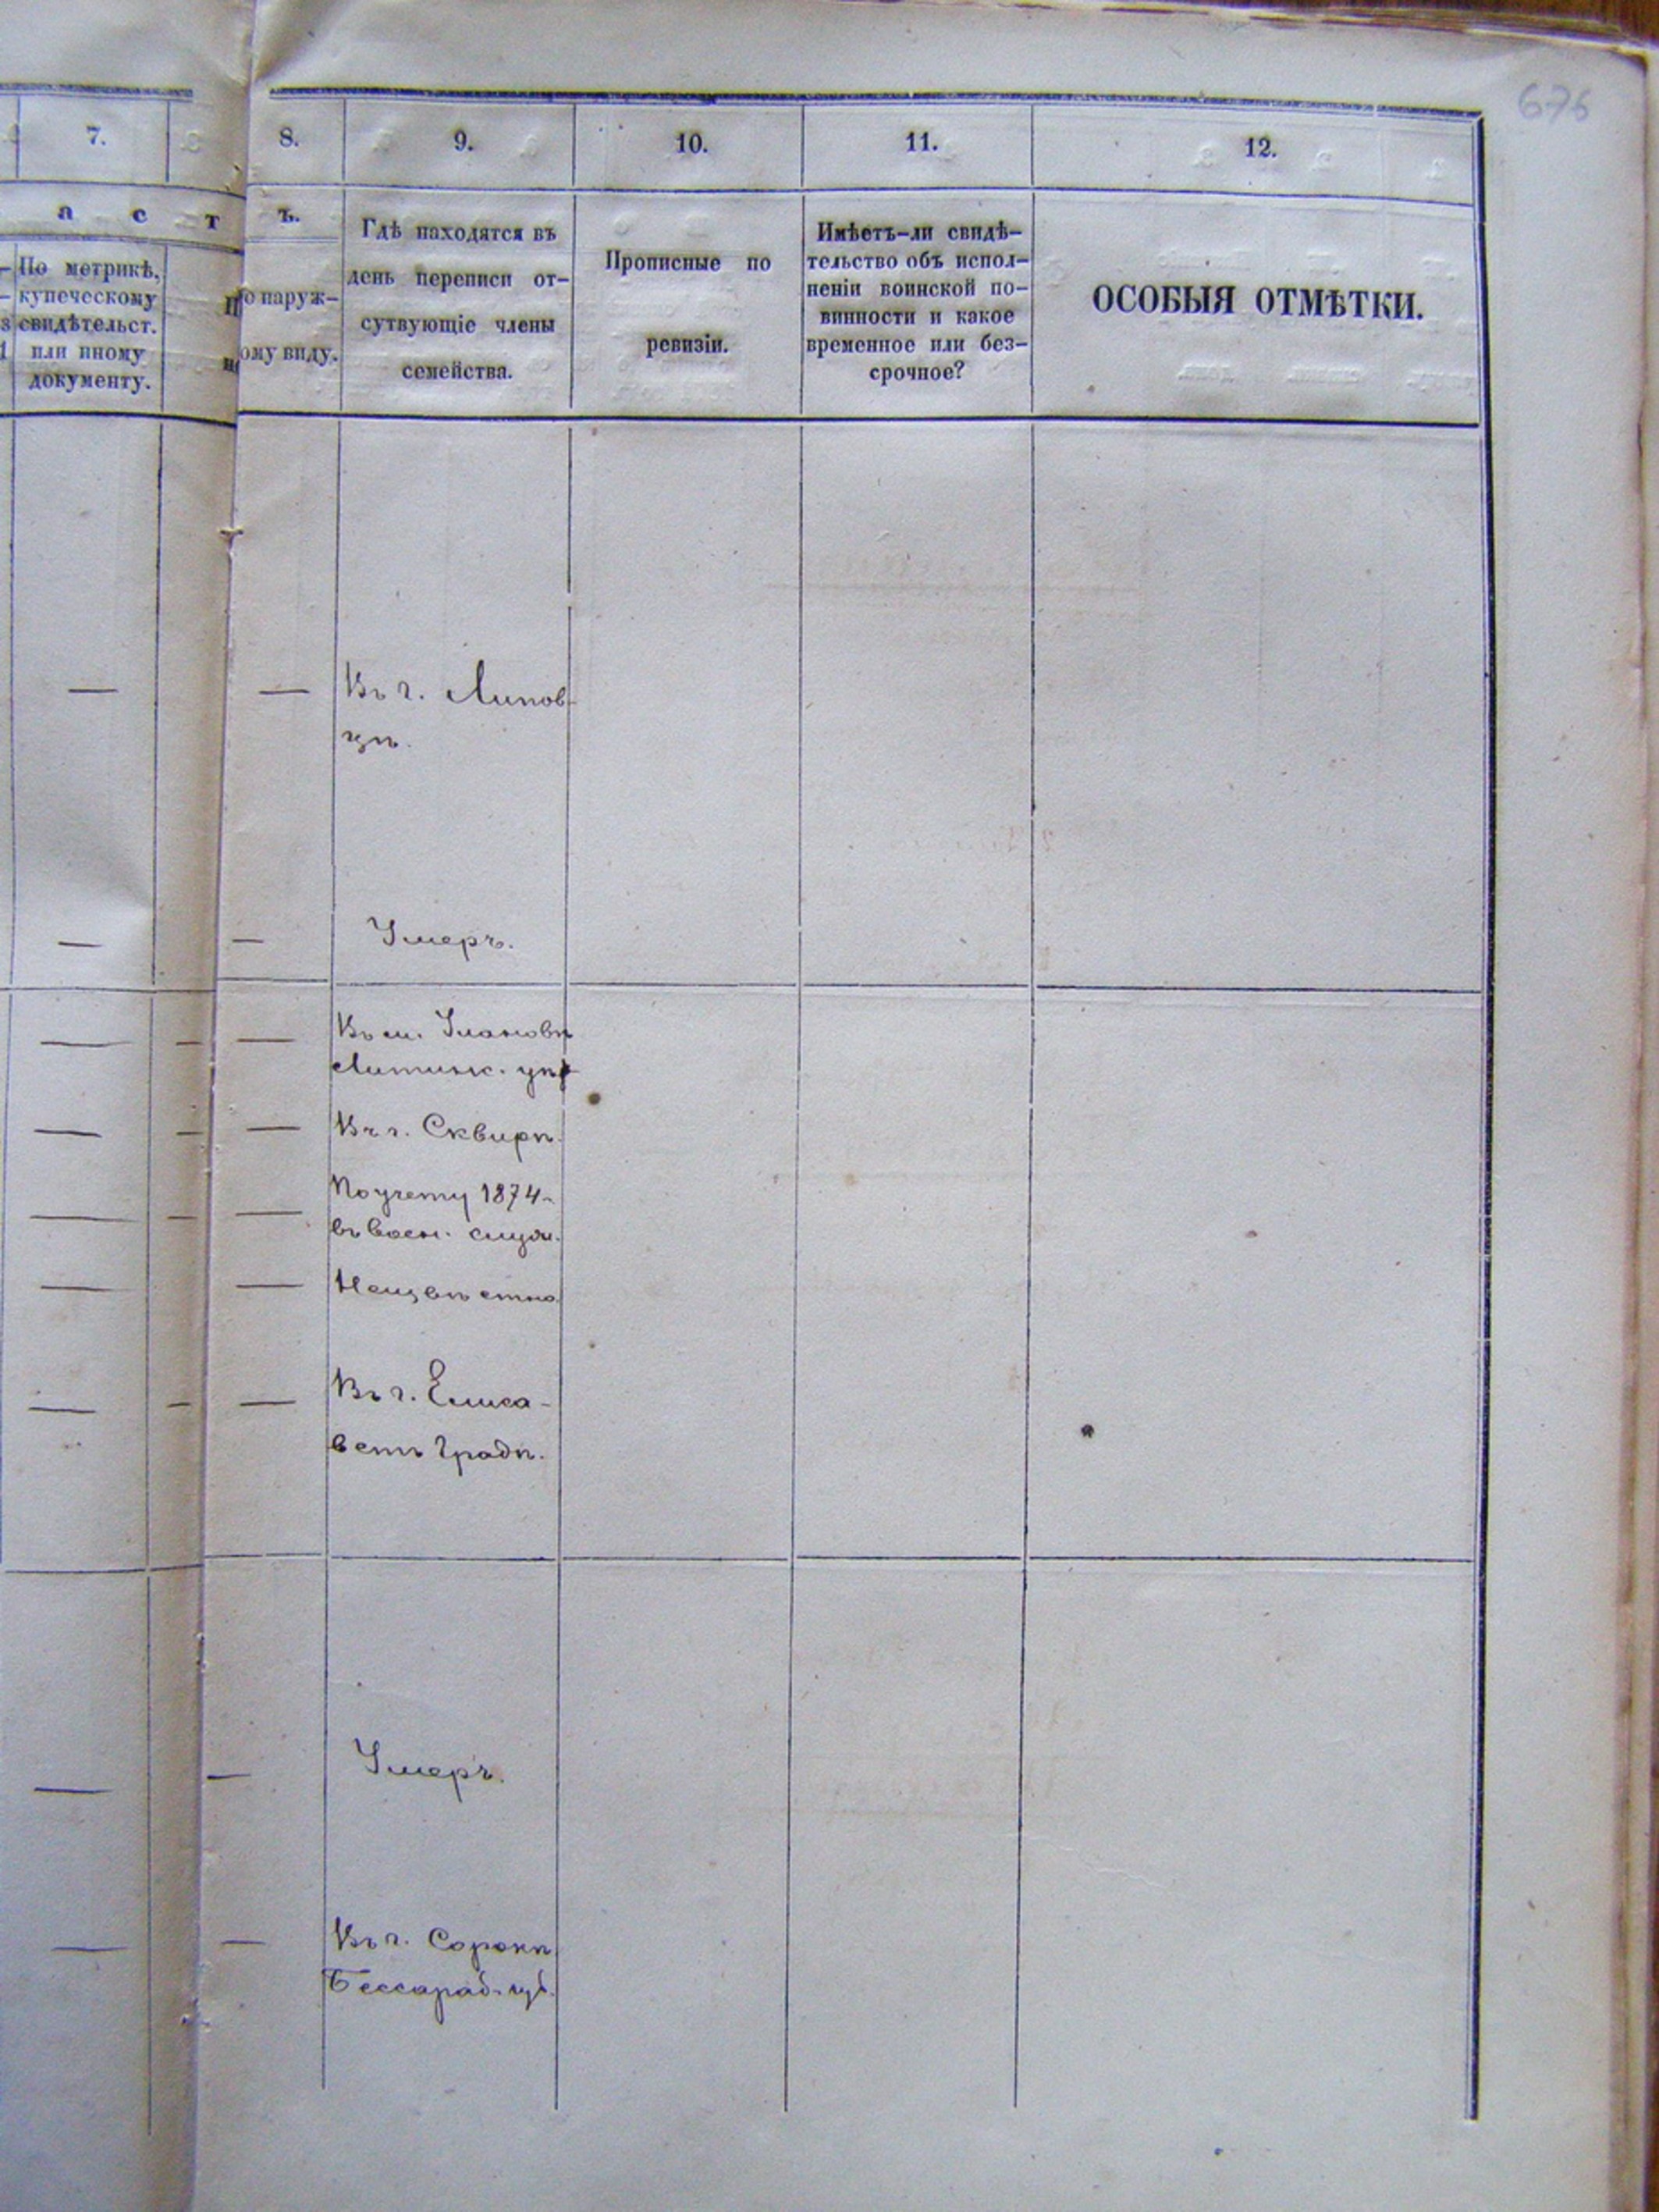 676
7.
8.
9.
10.
11.
12.
а с т ъ.
По метрикѣ,
купеческому
свидѣтельст.
или иному
документу.
о наруж-
ому виду.
Гдѣ находятся въ
день переписи от-
сутвующіе члены
семейства.
Прописные по
ревизіи.
Имѣетъ-ли свидѣ-
тельство объ испол-
неніи воинской по-
винности и какое
временное или без-
срочное?
ОСОБЫЯ ОТМѢТКИ.
— — Въ г. Липов-
цѣ.
— — Умеръ.
— — — Въ м. Улановѣ
Литинск. уѣ
— — — Въ г. Сквирѣ.
— — — По учету 1874
въ воен. служ.
— — Неизвѣстно
— — — Въ г. Елиса-
ветъ Градѣ.
— — Умеръ.
— — Въ г. Сорокѣ
Бессараб. губ.